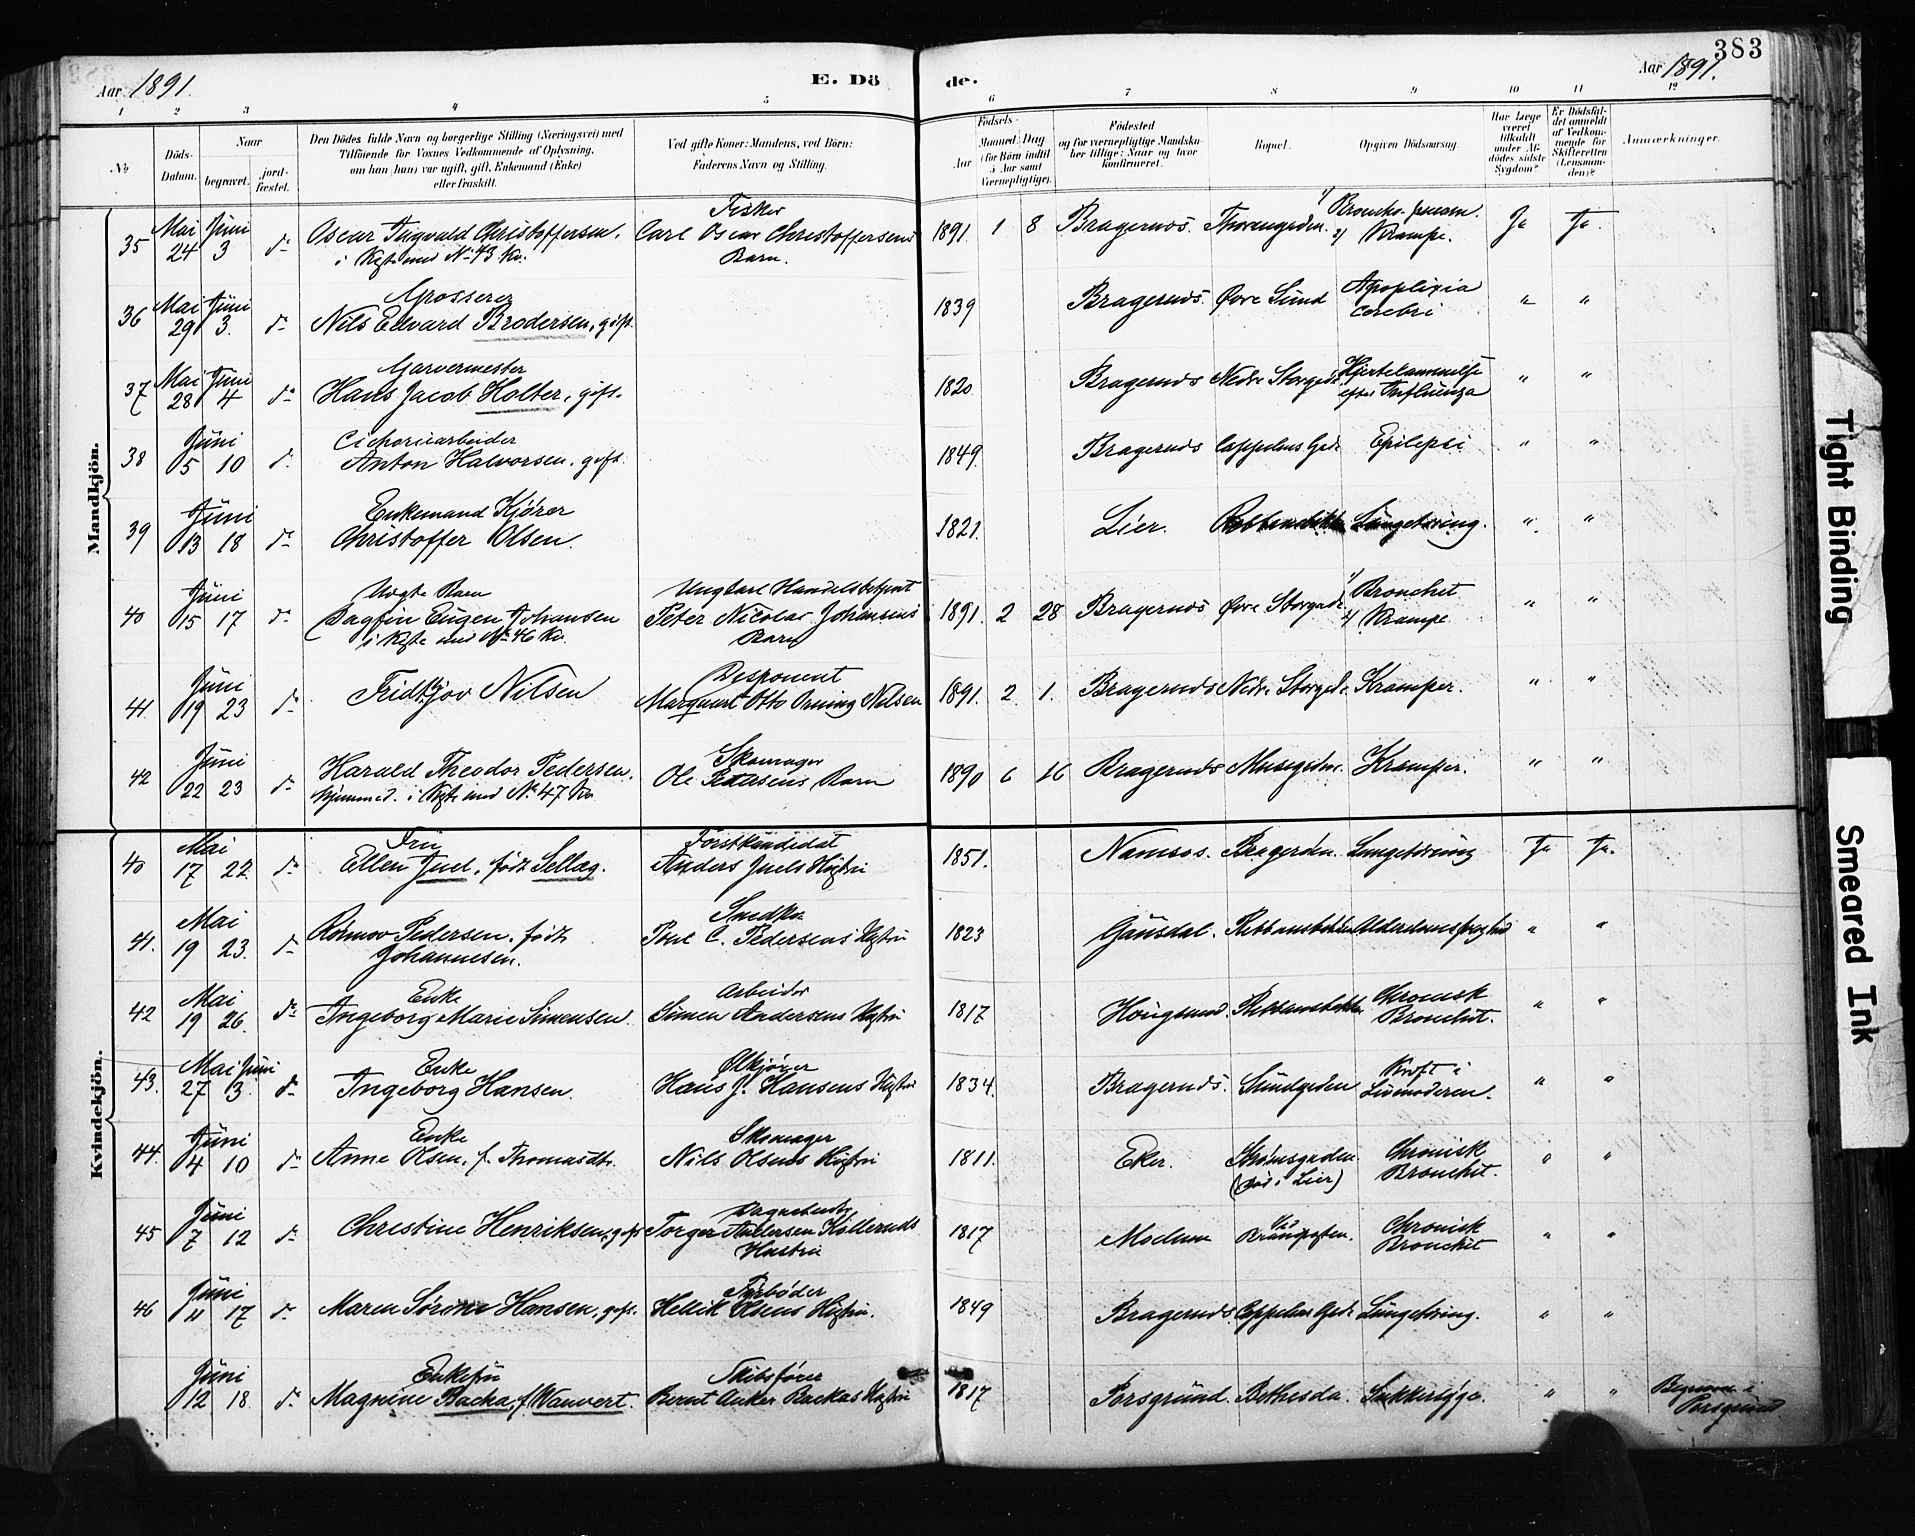 383
Aar 1891. E. Dö de. Aar 1891.
1 2 3 4 5 6 7 8 9 10 11 12
No
Döds-Datum.
Naar
begravet.
jord-fæstet.
Den Dödes fulde Navn og borgerlige Stilling (Næringsvei) med
Tilföiende for Voxnes Vedkommende af Oplysning,
om han (hun) var ugift, gift, Enkemand (Enke)
eller fraskilt.
Ved gifte Koner: Mandens, ved Börn:
Faderens Navn og Stilling.
Födsels-
Aar
Maaned Dag
(for Börn indtil
5 Aar samt
Værnepligtige).
Födested
og for værnepligtige Mandskaber tillige: Naar og hvor
konfirmeret.
Bopæl.
Opgiven Dödsaarsag.
Har Læge
været
tilkaldt
under Afdödes sidste
Sygdom?
Er Dödsfaldet anmeldt
af Vedkommende for
Skifteretten
(Lensmanden)?
Anmærkninger.
Mandkjön.
35 Mai 24 Juni 3 do Oscar Ingvald Christoffersen. Fisker Carl Oscar Christoffersens Barn. 1891 1 8 Bragernæs. 1/ Broncho-pneum. 2/ Krampe. Ja Ja
i Kiste med No 43 Kv.
36 Mai 29 Juni 3. do Grosserer Nils Edvard Brodersen, gift. 1839 Bragernæs. Øvre Sund Apoplexia cerebri " "
37 Mai 28 Juni 4 do Garvermester Hans Jacob Holter, gift. 1820 Bragernæs Nedre Storgade Hjertelammelse efter Influenza " "
38 Juni 5 10 do Cichoriearbeider Anton Halvorsen, gift. 1849. Bragernæs Cappelens Gade Epilepsi " "
39 Juni 13 18 do Enkemand Kjører Christoffer Olsen. 1821. Lier. Lungetæring. " "
40 Juni 15 17 do Uægte Barn Dagfin Eugen Johansen Ungkarl Handelsbetjent Peter Nicolai Johansens Barn 1891. 2 28 Bragernæs Øvre Storgade 1/ Bronchit 2/ Krampe " "
i Kiste med No 46 Kv.
41. Juni 19 23 do Fridtjov Nilsen Disponent Marquart Otto Nilsen 1891. 2. 1. Bragernæs Nedre Storgade Kramper. " "
42 Juni 22 23 do Harald Theodor Pedersen, Skomager Ole Petersens Barn 1890 6 16 Bragernæs Kramper. " "
hjemmed. i Kiste med No 47 Kv.
Kvindekjön.
40 Mai 17 22 do Fru Ellen Juel, født Sellæg. Forstkandidat Anders Juels Hustru 1851. Namsos. Lungetæring Ja Ja.
41. Mai 19 23. do Pedersen, født Johannesen. Snedker Poul C. Pedersens Hustru 1823 Gausdal. Alderdomssvaghed " "
42 Mai 19 26. do Enke Ingeborg Marie Simensen. Arbeider Simen Andersens Hustru 1817 Hougsund. Chronisk Bronchit. " "
43. Mai 27 Juni 3. do Enke Ingeborg Hansen. Ølkjører Hans J. Hansens Hustru 1834. Bragernæs. Sundgaden Kræft i Livmoderen. " "
44. Juni 4 10 do Enke Anne Olsen, f. Thomasdtr. Skomager Nils Olsens Hustru 1811. Eker. Strømsgaden. (død i Lier) Chronisk Bronchit. " "
45 Juni 7 12 do Christine Henriksen, gift Torger Andersen Hustru 1817 Modum Chronisk Bronchit " "
46 Juni 11 17 do Maren Sørine Hansen, gift. Fyrbøder Hellik Olsens Hustru. 1849 Bragernæs. Cappelens Gade Lungetæring. " "
Juni 12 18. do Enkefru Magnine Backa, f. Wauvert. Skibsfører Bernt Anker Backas Hustru 1817 Porsgrund. Bethesda. Sukkersyge. " " Begraven i Porsgrund
Tight Binding
Smeared Ink